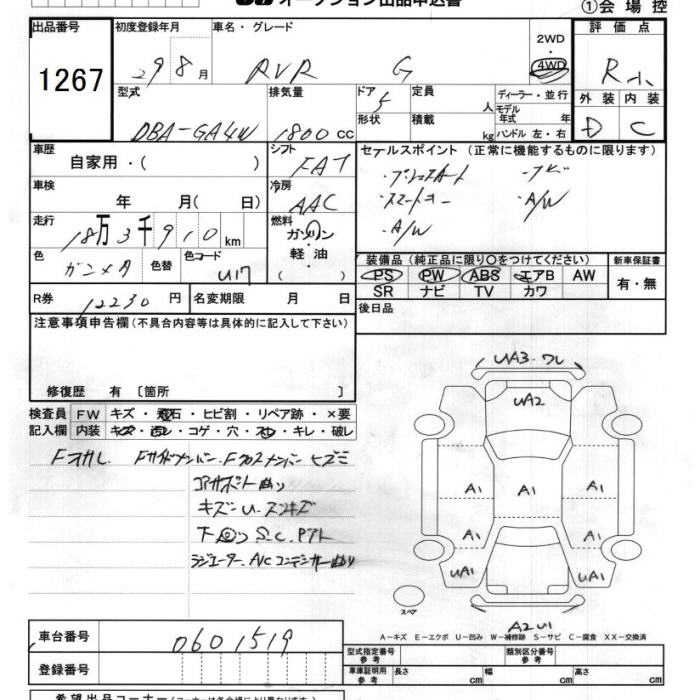 オークション出品申込書
①会場控
出品番号
1267
初度登録年月
29 8 月
車名・グレード
RVR G
2WD
・
4WD
評価点
R
型式
DBA-GA4W
排気量
1800 cc
ドア
5
形状
定員
人
積載
kg
ディーラー・並行
モデル年式
年
ハンドル 左・右
外装 内装
D C
車歴
自家用・( )
シフト
FAT
セールスポイント (正常に機能するものに限ります)
・プッシュスタート ・ナビ
・スマートキー ・A/W
・A/W
車検
年 月( 日)
冷房
AAC
走行
18万3千910km
燃料
ガソリン
軽油
・( )
色
ガンメタ
色替
色コード
U17
装備品 (純正品に限り○をつけてください)
PS PW ABS エアB AW
SR ナビ TV カワ
新車保証書
有・無
R券
12230 円
名変期限 月 日
後日品
注意事項申告欄(不具合内容等は具体的に記入して下さい)
修復歴 有 〔箇所 〕
検査員記入欄
FW キズ・飛石・ヒビ割・リペア跡・×要
内装 キズ・汚レ・コゲ・穴・スレ・キレ・破レ
Fサイドメンバー Fクロスメンバー ヒズミ
コアサポート曲り
キズ U スンキズ
下回り S.C.
ラジエーター A/Cコンデンサー曲り
UA3・ワレ
UA2
A1 A1 A1
A1 A1
UA1 UA1
スペア
A2 U1
A－キズ E－エクボ U－凹み W－補修跡 S－サビ C－腐食 XX－交換済
車台番号
0601519
登録番号
型式指定番号
参考
類別区分番号
参考
車庫証明用
参考
長さ cm 幅 cm 高さ cm
希望出品コーナー